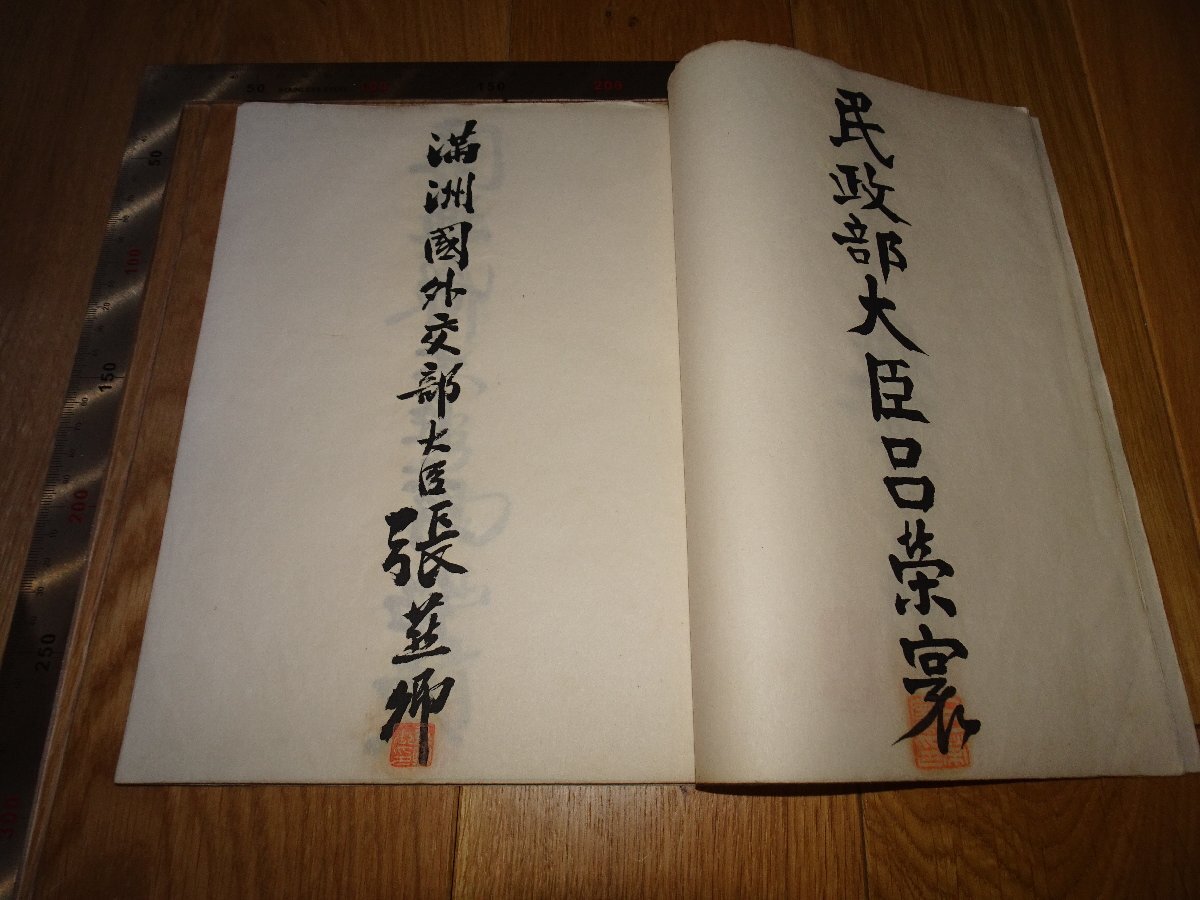 民政部大臣呂榮寰
滿洲國外交部大臣張燕卿
50 STAINLESS STEEL 100 150 200
50
100
150
200
250
300